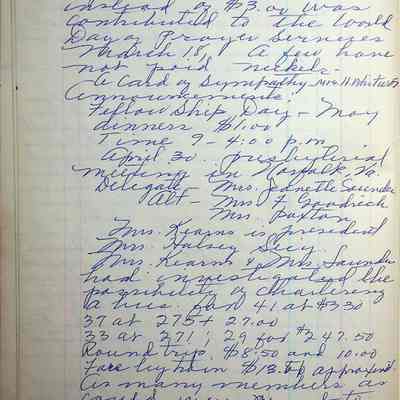 instead of $3.00 was
contributed to the World
Day of Prayer Services
March 18, A few have
not paid nickels.
A Card of Sympathy - Mrs. H.
Announcements:
Fellow Ship Day - May
dinners $1.00
Time 9 - 4:00 p.m.
April 30. Presbyterial
meeting in Norfolk, Va.
Delegate - Mrs. Jeanette Saunder
Alt - Mrs. F. Goodrich
Mrs. Paxton
Mrs. Kearns is president
Mrs. Halsey Secy.
Mrs. Kearns & Mrs. Saunder
had investigated the
of chartering
a bus for 41 at $3.30
37 at 275+ 27.00
33 at 271; 29 for $247.50
Round trip. $8.50 and 10.00
Fare by train $13. approximd.
As many members as